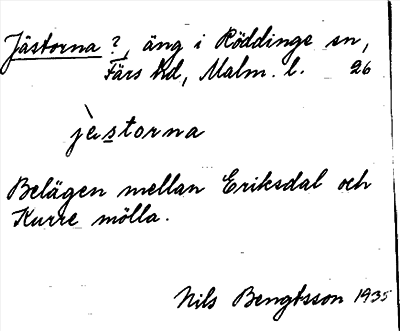 Jästorna ?, äng i Röddinge sn,
Färs hd, Malm. l. 26
jèstorna
Belägen mellan Eriksdal och
Kurremölla.
Nils Bengtsson 1935